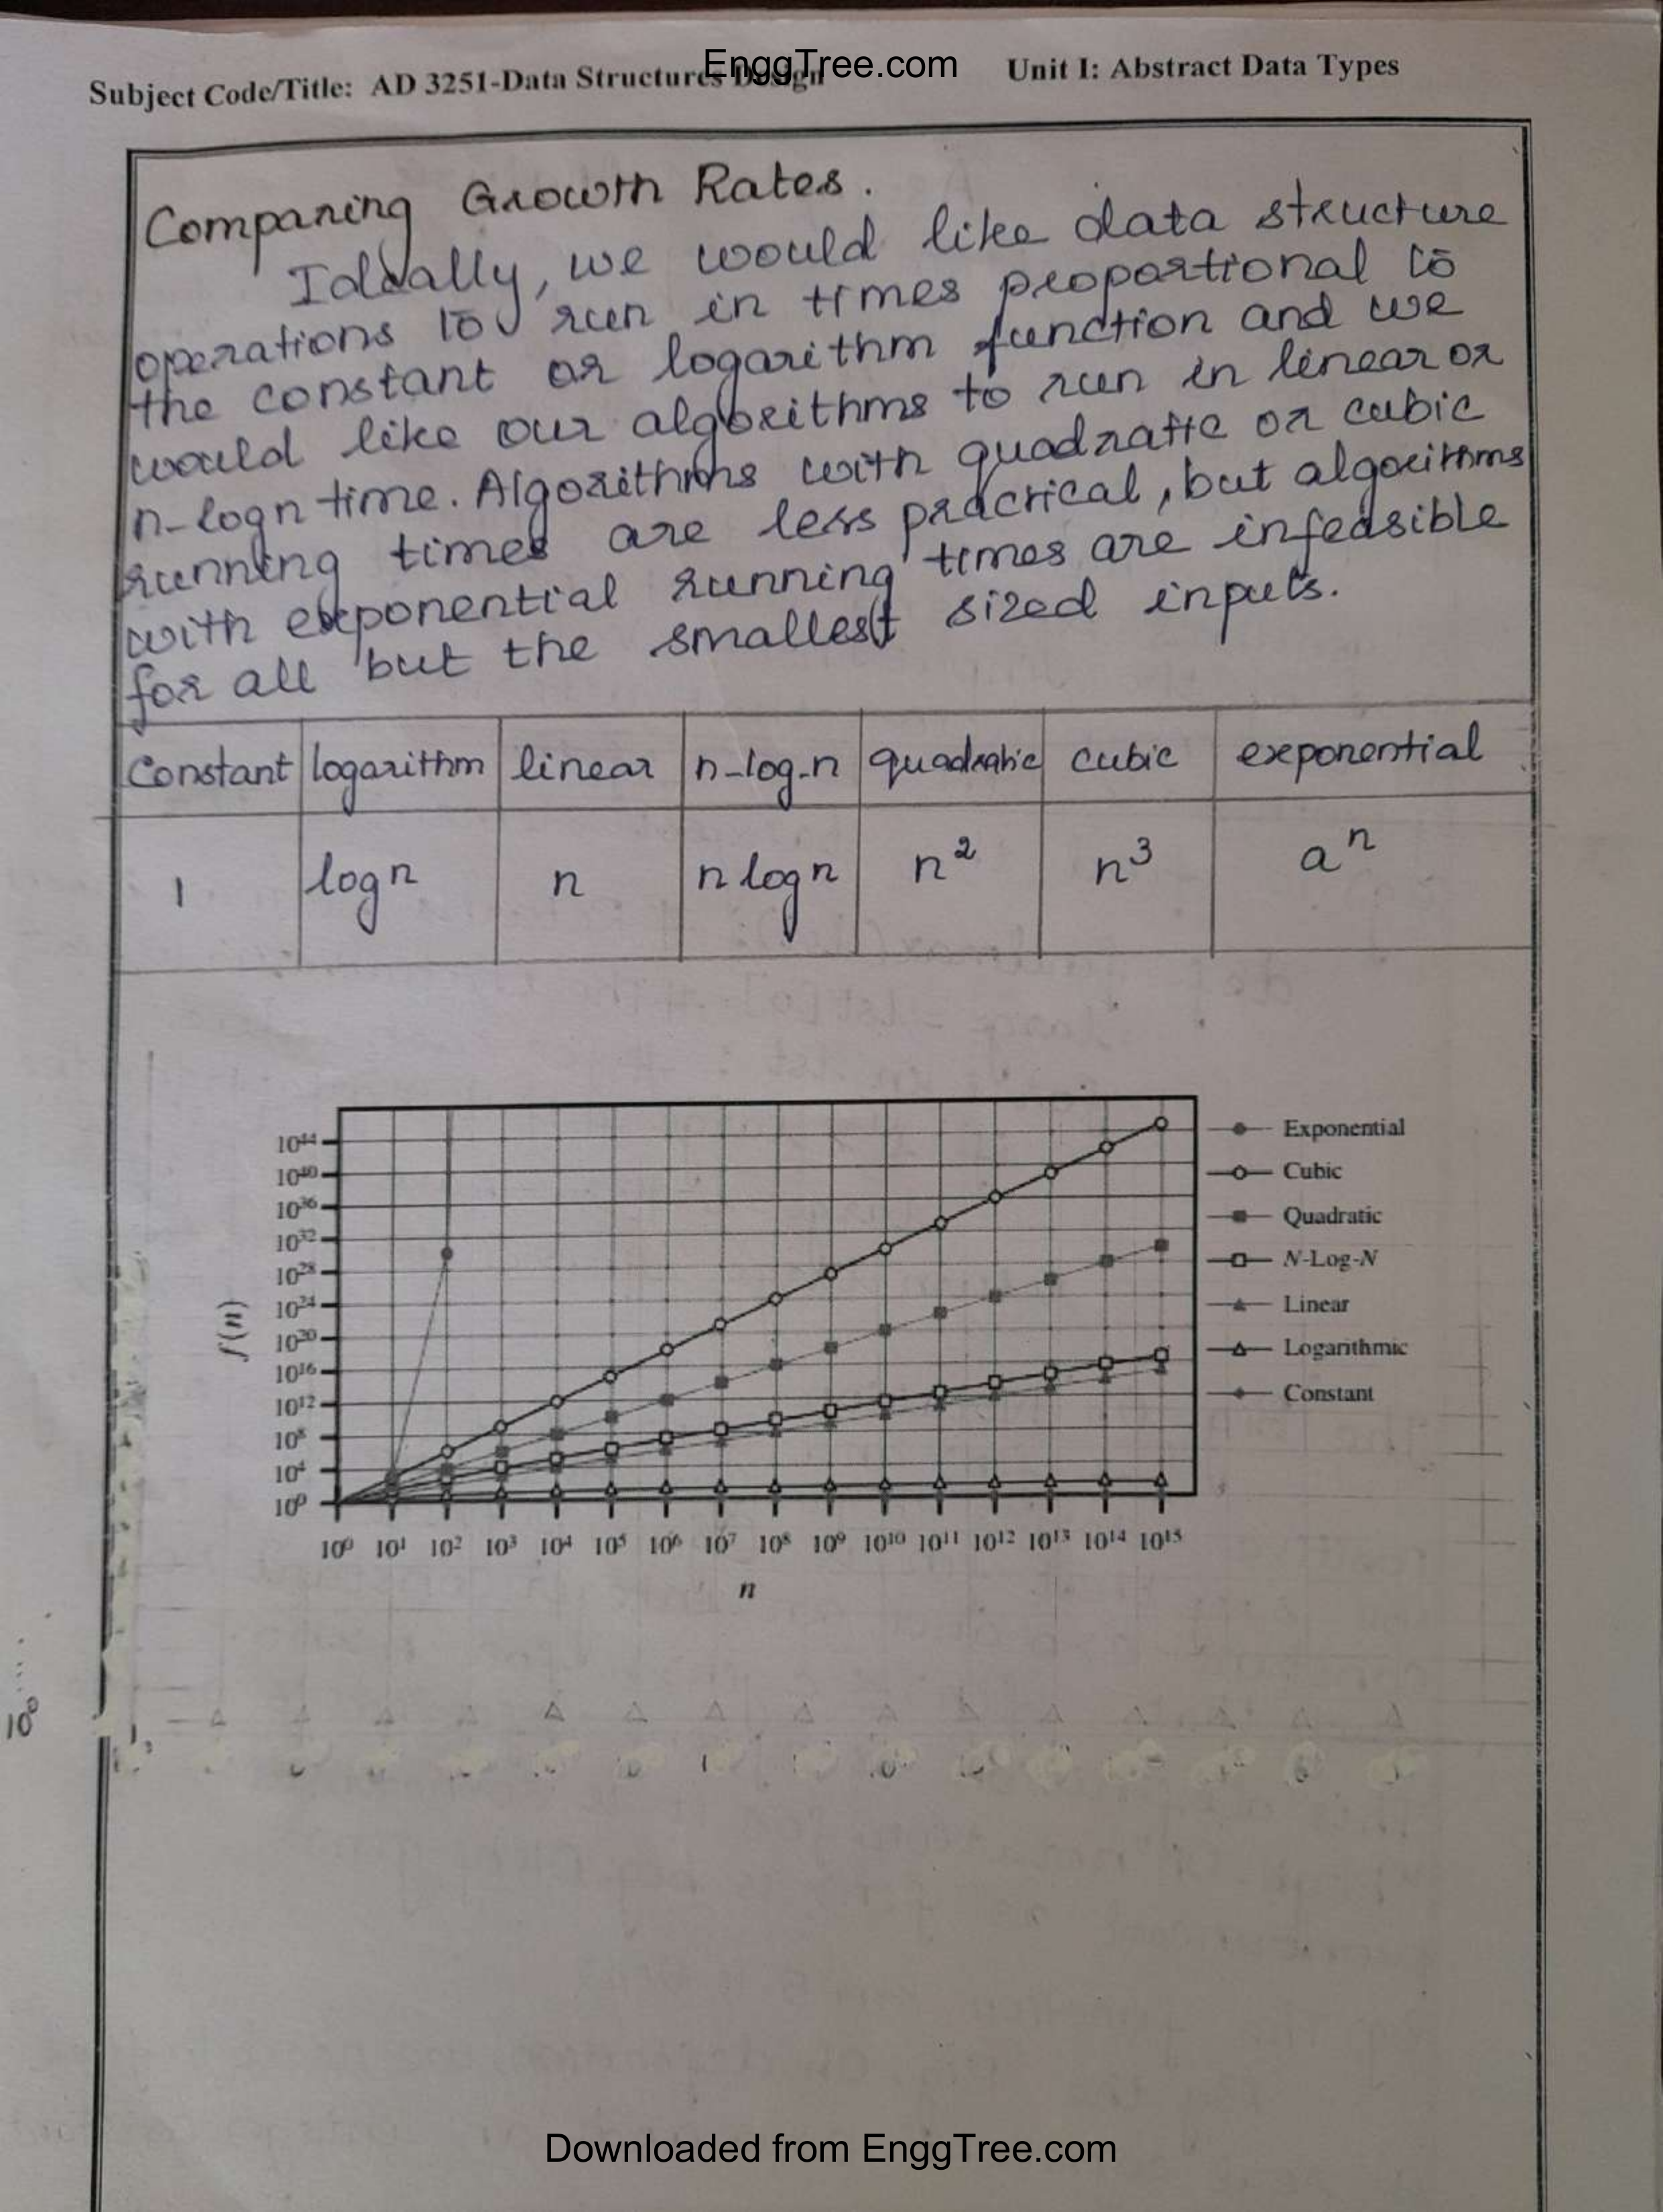 EnggTree.com
Subject Code/Title: AD 3251-Data Structures Design
Unit I: Abstract Data Types
Comparing Growth Rates.
Ideally, we would like data structure
operations to run in times proportional to
the constant or logarithm function and we
would like our algorithms to run in linear or
n-logn time. Algorithms with quadratic or cubic
running times are less practical, but algorithms
with exponential running times are infeasible
for all but the smallest sized inputs.
Constant logarithm linear n-log-n quadratic cubic exponential
1 log n n n log n n² n³ aⁿ
10⁴⁴
10⁴⁰
10³⁶
10³²
10²⁸
10²⁴
10²⁰
10¹⁶
10¹²
10⁸
10⁴
10⁰
f(n)
10⁰ 10¹ 10² 10³ 10⁴ 10⁵ 10⁶ 10⁷ 10⁸ 10⁹ 10¹⁰ 10¹¹ 10¹² 10¹³ 10¹⁴ 10¹⁵
n
Exponential
Cubic
Quadratic
N-Log-N
Linear
Logarithmic
Constant
10⁰
Downloaded from EnggTree.com